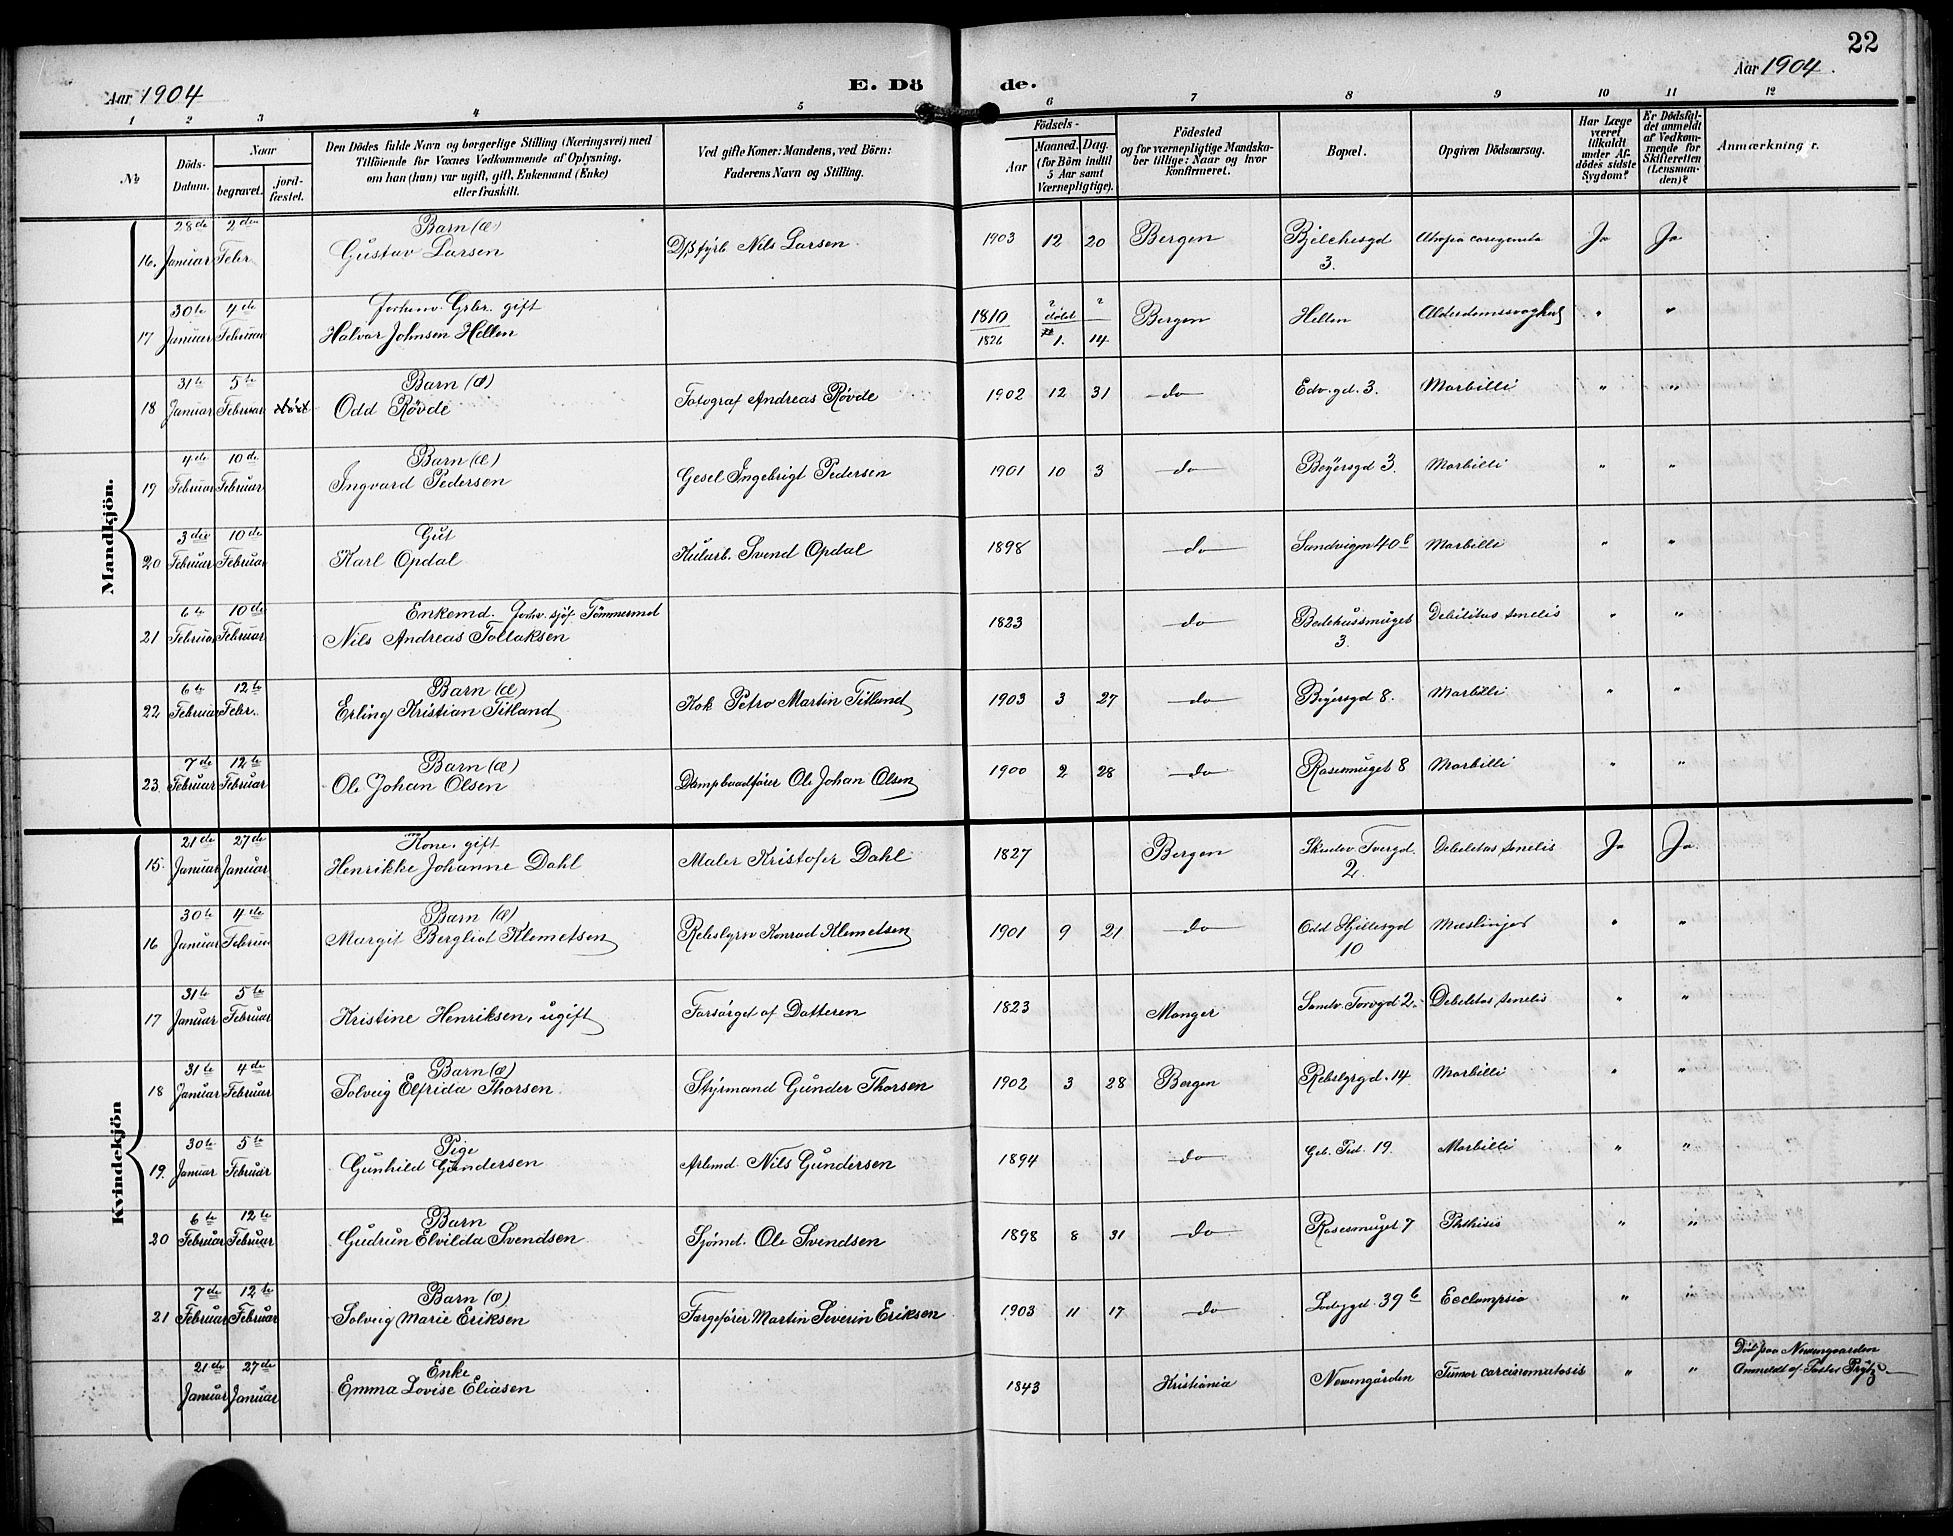 22
Aar 1904
E. Dö de.
Aar 1904.
1 2 3 4 5 6 7 8 9 10 11 12
No
Döds-Datum.
Naar
begravet.
jord-fæstet.
Den Dödes fulde Navn og borgerlige Stilling (Næringsvei) med
Tilföiende for Voxnes Vedkommende af Oplysning,
om han (hun) var ugift, gift, Enkemand (Enke)
eller fraskilt.
Ved gifte Koner: Mandens, ved Börn:
Faderens Navn og Stilling.
Födsels-
Aar
Maaned. Dag.
(for Börn indtil
5 Aar samt
Værnepligtige).
Födested
og for værnepligtige Mandska-
ber tillige: Naar og hvor
konfirmeret.
Bopæl.
Opgiven Dödsaarsag.
Har Læge
været
tilkaldt
under Af-
dödes sidste
Sygdom?
Er Dödsfal-
det anmeldt
af Vedkom-
mende for
Skifteretten
(Lensman-
den)?
Anmærkninger.
Mandkjön.
28de 2den Barn (Æ)
16. Januar Febr Gustav Larsen Nils Larsen 1903 12 20 Bergen 3. Ja Ja
30te 4de gift
17 Januar Februar Halvar Johnsen Hellen 1810 døbt 1826 1. 14 Bergen Hellen Alderdomssvaghed " "
31te 5te Barn (Æ)
18 Januar Februar Odd Røvde Fotograf Andreas Røvde 1902 12 31 do Edv. gd. 3. Morbilli " "
4de 10de Barn (Æ)
19 Februar Februar Ingvard Pedersen Gesel Ingebrigt Pedersen 1901 10 3 do Beyersgd 3. Morbilli " "
3die 10de Gut
20 Februar Februar Karl Opdal Kularb. Svend Opdal 1898 do Sandvigen 40b Morbilli " "
6te 10de Enkemd. Tømmermd
21 Februar Februar Nils Andreas Tollaksen 1823 do Bedehussmuget 3. Debilitas senelis " "
6te 12te Barn (Æ)
22 Februar Febr. Erling Kristian Titland Kok Petro Martin Titland 1903 3 27 do Beyersgd 8. Morbilli " "
7de 12te Barn (Æ)
23. Februar Februar Ole Johan Olsen Dampbaadfører Ole Johan Olsen 1900 2 28 do Rosesmuget 8 Morbilli " "
Kvindekjön
21de 27de Kone. gift
15. Januar Januar Henrikke Johanne Dahl Maler Kristofer Dahl 1827 Bergen Tvergd. 2. Debeletas senelis Ja Ja
30te 4de Barn (Æ)
16 Januar Februar Margit Bergliot Klemetsen Konrad Klemetsen 1901 9 21 do Odd Gjellesgd 10 Mæslinger " "
31te 5te
17 Januar Februar Kristine Henriksen, ugift Forsørget af Datteren 1823 Manger Sandv. Torvgd 2. Debeletas senelis " "
31te 4de Barn (Æ)
18 Januar Februar Solveig Elfrida Thorsen Styrmand Gunder Thorsen 1902 3 28 Bergen 14 Morbilli " "
30te 5te Pige
19. Januar Februar Gunhild Gundersen Arbmd. Nils Gundersen 1894 do 19. Morbilli " "
6te 12te Barn
20 Februar Februar Gudrun Elvilda Svendsen Sjømd. Ole Svendsen 1898 8 31 do Rosesmuget 7 Phthisis " "
7de 12te Barn (Æ)
21 Februar Februar Solveig Marie Eriksen Færgefører Martin Severin Eriksen 1903 11 17 do 39b Ecclampsia " "
21de 27de Enke
Januar Januar Emma Lovise Eliasen 1843 Kristiania Nevengården Tumor carcinomatosis " "
Død paa Nevengaarden
Anmeldt af Pastor